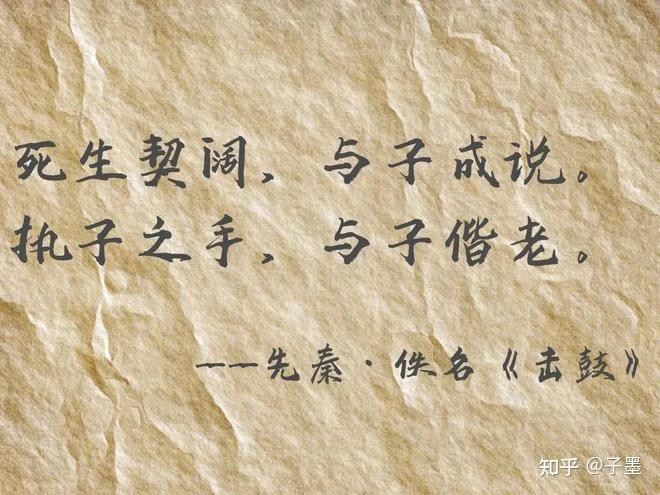 死生契阔，与子成说。
执子之手，与子偕老。
——先秦·佚名《击鼓》
知乎 @子墨